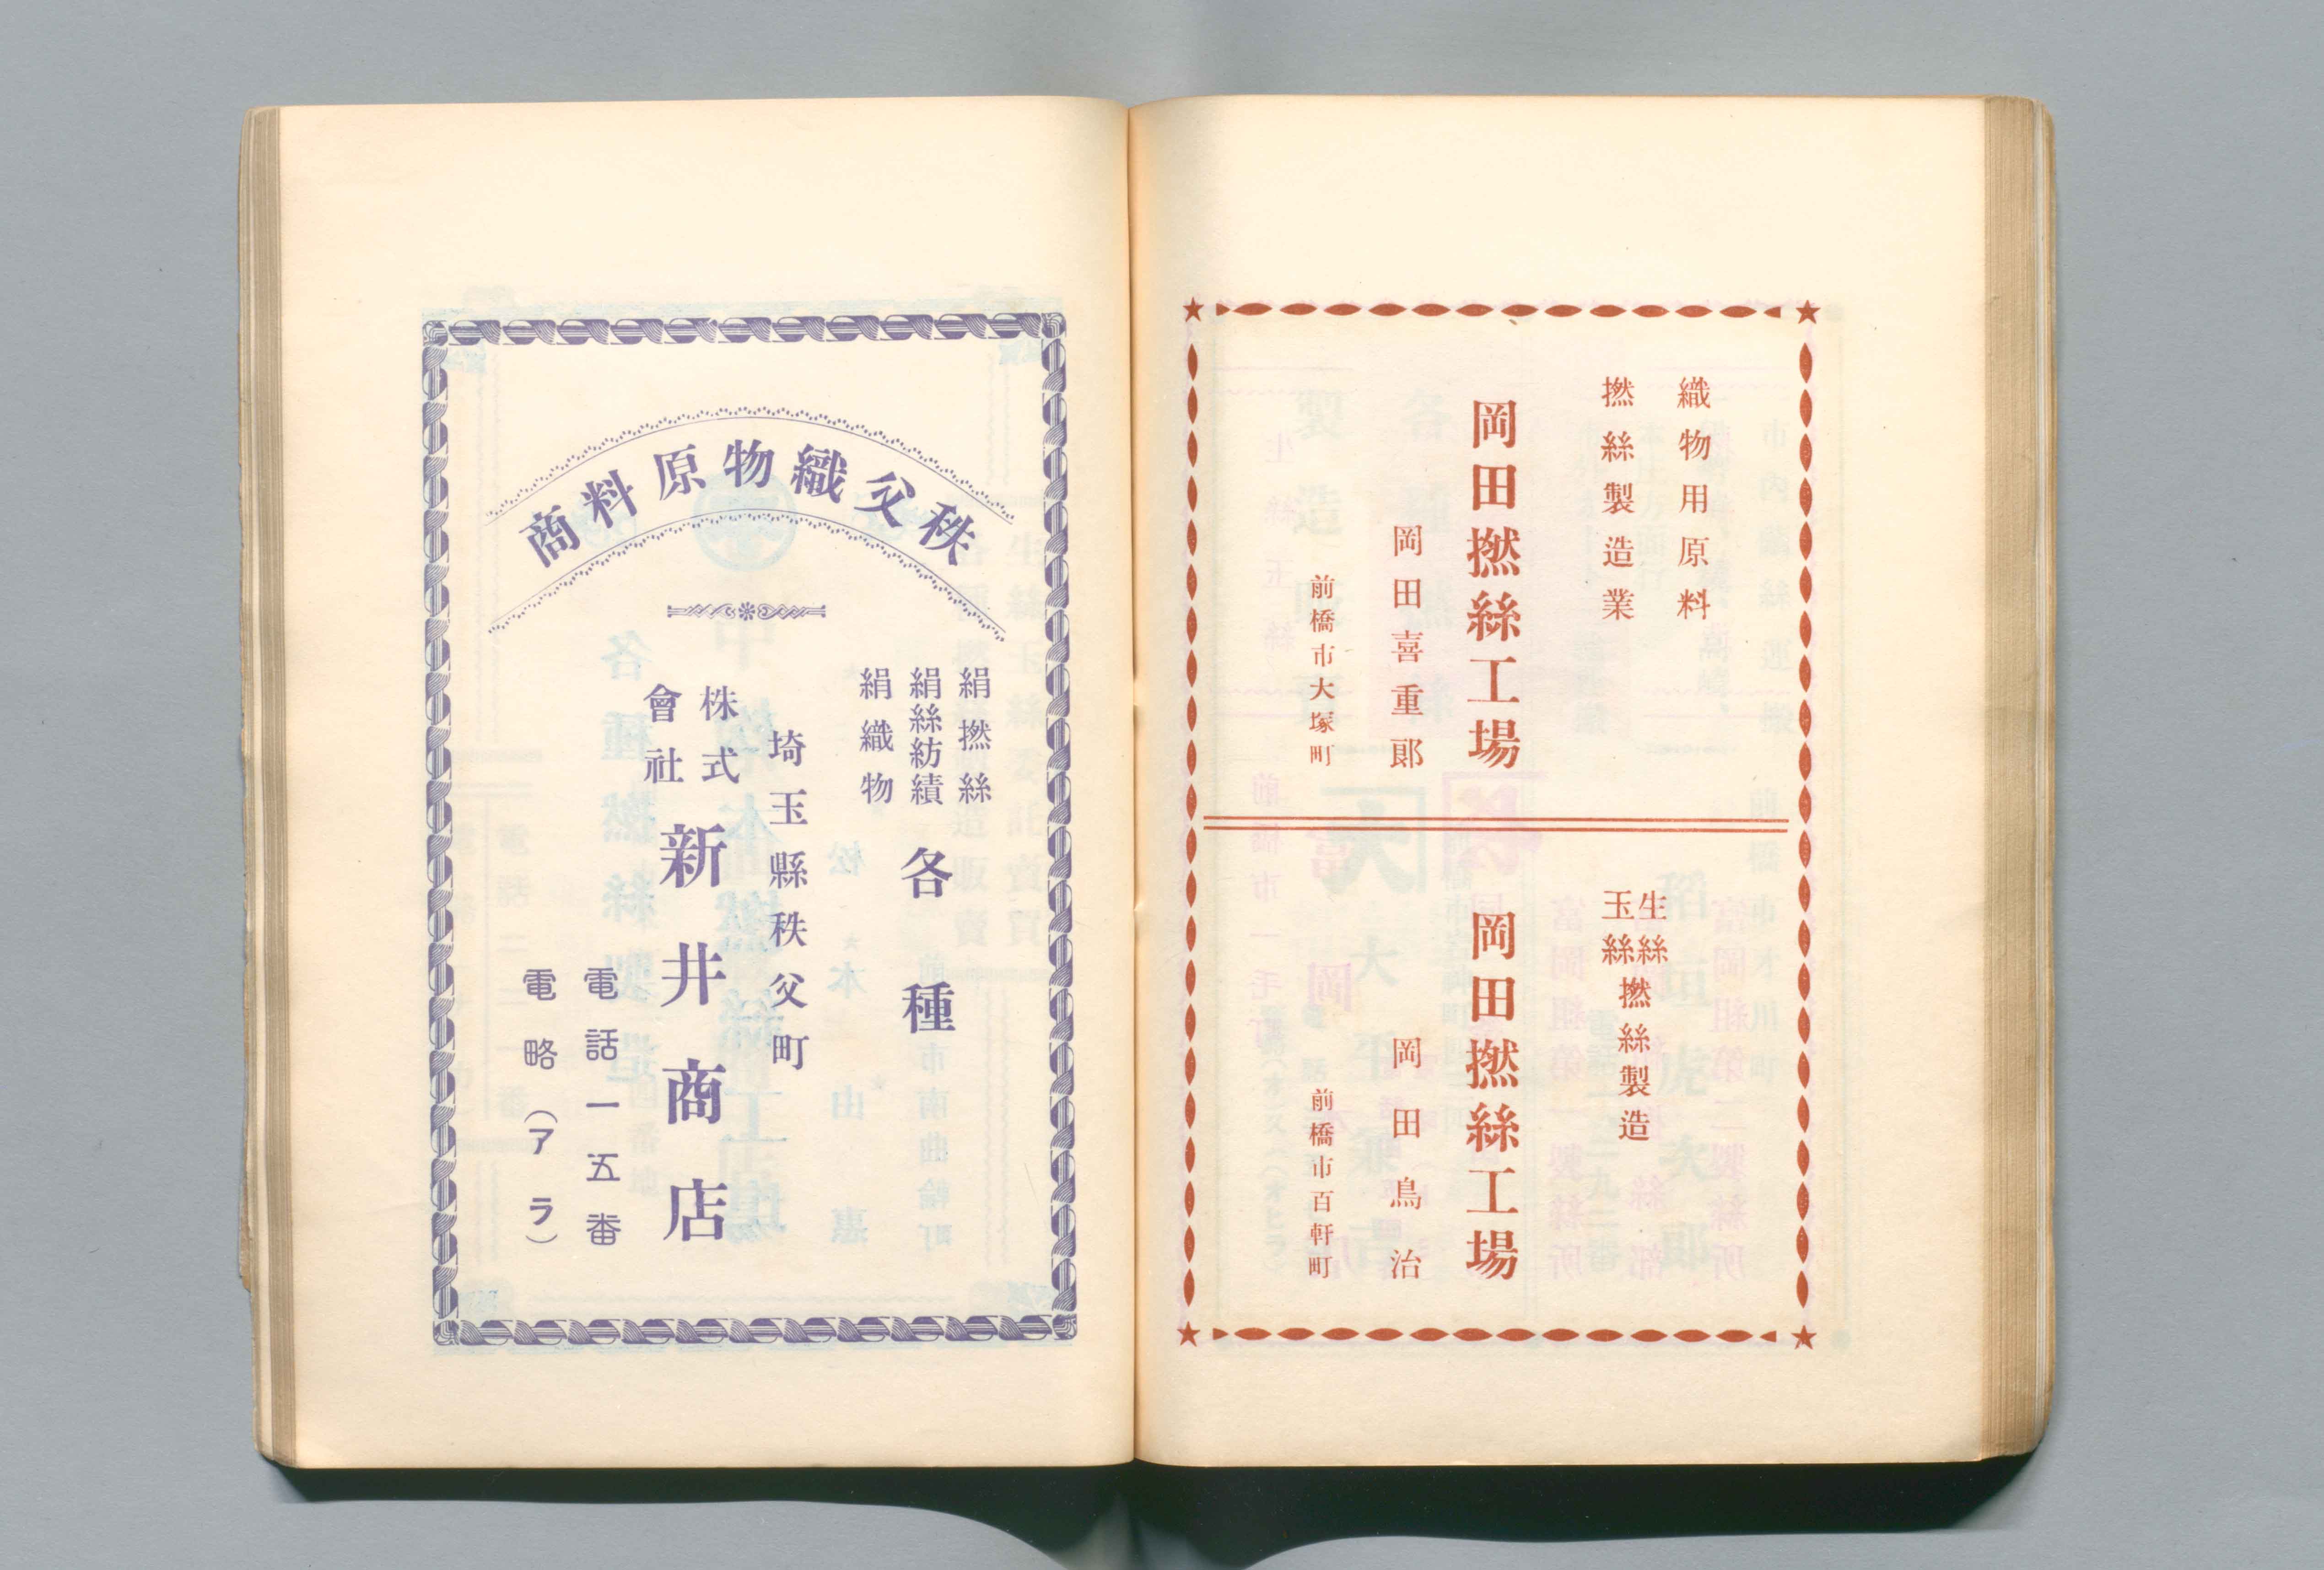 織物用原料
撚絲製造業
岡田撚絲工場
岡田喜重郞
前橋市大塚町
生絲
玉絲
撚絲製造
岡田撚絲工場
岡田鳥治
前橋市百軒町
秩父織物原料商
絹撚絲
絹絲紡績
絹織物
各種
埼玉縣秩父町
株式
會社
新井商店
電話一五番
電略(アラ)